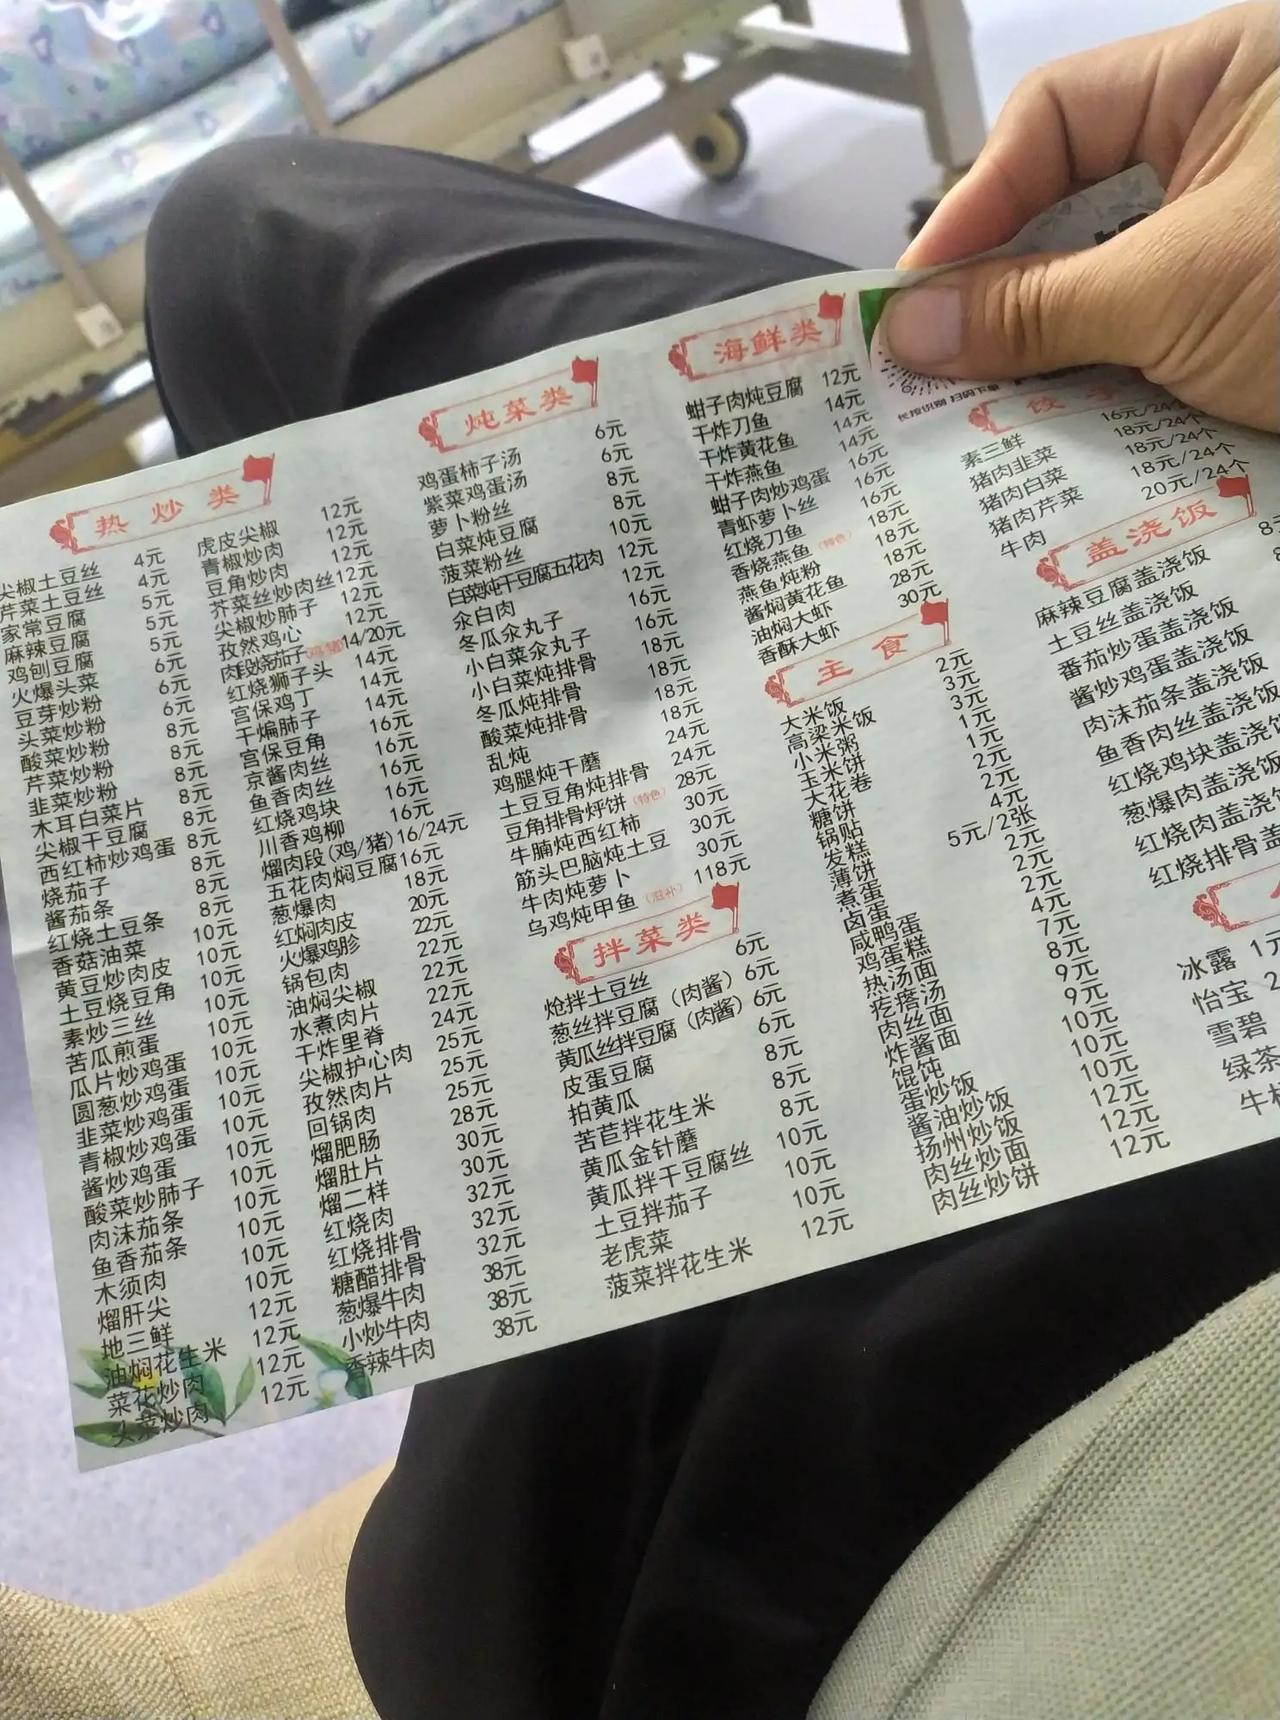 热炒类
尖椒土豆丝 4元
芹菜土豆丝 4元
家常豆腐 5元
麻辣豆腐 5元
鸡刨豆腐 5元
火爆头菜 6元
豆芽炒粉 6元
头菜炒粉 6元
酸菜炒粉 8元
芹菜炒粉 8元
韭菜炒粉 8元
木耳白菜片 8元
尖椒干豆腐 8元
西红柿炒鸡蛋 8元
烧茄子 8元
酱茄条 8元
红烧土豆条 8元
香菇油菜 10元
黄豆炒肉皮 10元
土豆烧豆角 10元
素炒三丝 10元
苦瓜煎蛋 10元
瓜片炒鸡蛋 10元
圆葱炒鸡蛋 10元
韭菜炒鸡蛋 10元
青椒炒鸡蛋 10元
酱炒鸡蛋 10元
酸菜炒肺子 10元
肉沫茄条 10元
鱼香茄条 10元
木须肉 10元
熘肝尖 10元
地三鲜 12元
油焖花生米 12元
菜花炒肉 12元
头菜炒肉 12元
虎皮尖椒 12元
青椒炒肉 12元
豆角炒肉 12元
芥菜丝炒肉丝 12元
尖椒炒肺子 12元
孜然鸡心 12元
肉段烧茄子(鸡/猪) 14/20元
红烧狮子头 14元
宫保鸡丁 14元
干煸肺子 14元
宫保豆角 16元
京酱肉丝 16元
鱼香肉丝 16元
红烧鸡块 16元
川香鸡柳 16元
熘肉段(鸡/猪) 16/24元
五花肉焖豆腐 16元
葱爆肉 18元
红焖肉皮 20元
火爆鸡胗 22元
锅包肉 22元
油焖尖椒 22元
水煮肉片 22元
干炸里脊 24元
尖椒护心肉 25元
孜然肉片 25元
回锅肉 25元
熘肥肠 28元
熘肚片 30元
熘二样 30元
红烧肉 32元
红烧排骨 32元
糖醋排骨 32元
葱爆牛肉 38元
小炒牛肉 38元
香辣牛肉 38元
炖菜类
鸡蛋柿子汤 6元
紫菜鸡蛋汤 6元
萝卜粉丝 8元
白菜炖豆腐 8元
菠菜粉丝 10元
白菜炖干豆腐五花肉 12元
汆白肉 12元
冬瓜汆丸子 16元
小白菜汆丸子 16元
小白菜炖排骨 18元
冬瓜炖排骨 18元
酸菜炖排骨 18元
乱炖 18元
鸡腿炖干蘑 24元
土豆豆角炖排骨 24元
豆角排骨烀饼(特色) 28元
牛腩炖西红柿 30元
筋头巴脑炖土豆 30元
牛肉炖萝卜 30元
乌鸡炖甲鱼(滋补) 118元
拌菜类
炝拌土豆丝 6元
葱丝拌豆腐(肉酱) 6元
黄瓜丝拌豆腐(肉酱) 6元
皮蛋豆腐 6元
拍黄瓜 8元
苦苣拌花生米 8元
黄瓜金针蘑 8元
黄瓜拌干豆腐丝 10元
土豆拌茄子 10元
老虎菜 10元
菠菜拌花生米 12元
海鲜类
蚶子肉炖豆腐 12元
干炸刀鱼 14元
干炸黄花鱼 14元
干炸燕鱼 14元
蚶子肉炒鸡蛋 16元
青虾萝卜丝 16元
红烧刀鱼 16元
香烧燕鱼(特色) 18元
燕鱼炖粉 18元
酱焖黄花鱼 18元
油焖大虾 28元
香酥大虾 30元
主食
大米饭 2元
高粱米饭 3元
小米粥 1元
玉米饼 1元
大花卷 2元
糖饼 2元
锅贴 4元
发糕 5元/2张
薄饼 2元
煮蛋 2元
卤蛋 2元
咸鸭蛋 4元
鸡蛋糕 7元
热汤面 8元
疙瘩汤 9元
肉丝面 9元
炸酱面 10元
馄饨 10元
蛋炒饭 10元
酱油炒饭 12元
扬州炒饭 12元
肉丝炒面 12元
肉丝炒饼
长按识别 扫码下单
饺子
素三鲜 16元/24个
猪肉韭菜 18元/24个
猪肉白菜 18元/24个
猪肉芹菜 18元/24个
牛肉 20元/24个
盖浇饭
麻辣豆腐盖浇饭
土豆丝盖浇饭
番茄炒蛋盖浇饭
酱炒鸡蛋盖浇饭
肉沫茄条盖浇饭
鱼香肉丝盖浇饭
红烧鸡块盖浇饭
葱爆肉盖浇饭
红烧肉盖浇饭
红烧排骨盖
冰露 1元
怡宝 2
雪碧
绿茶